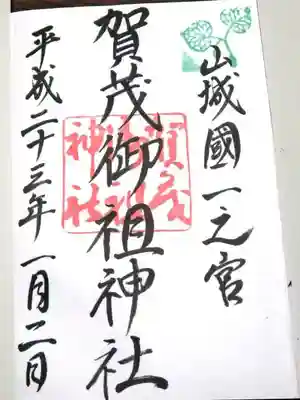 山城國一之宮
賀茂御祖神社
平成二十三年一月二日